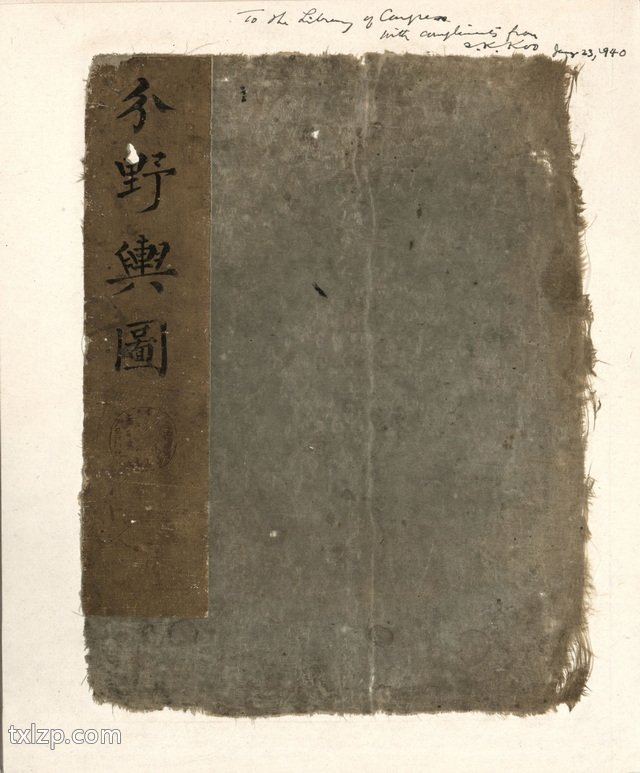 To the Library of Congress
with compliments from
Koo 23, 1940
分野輿圖
txlzp.com